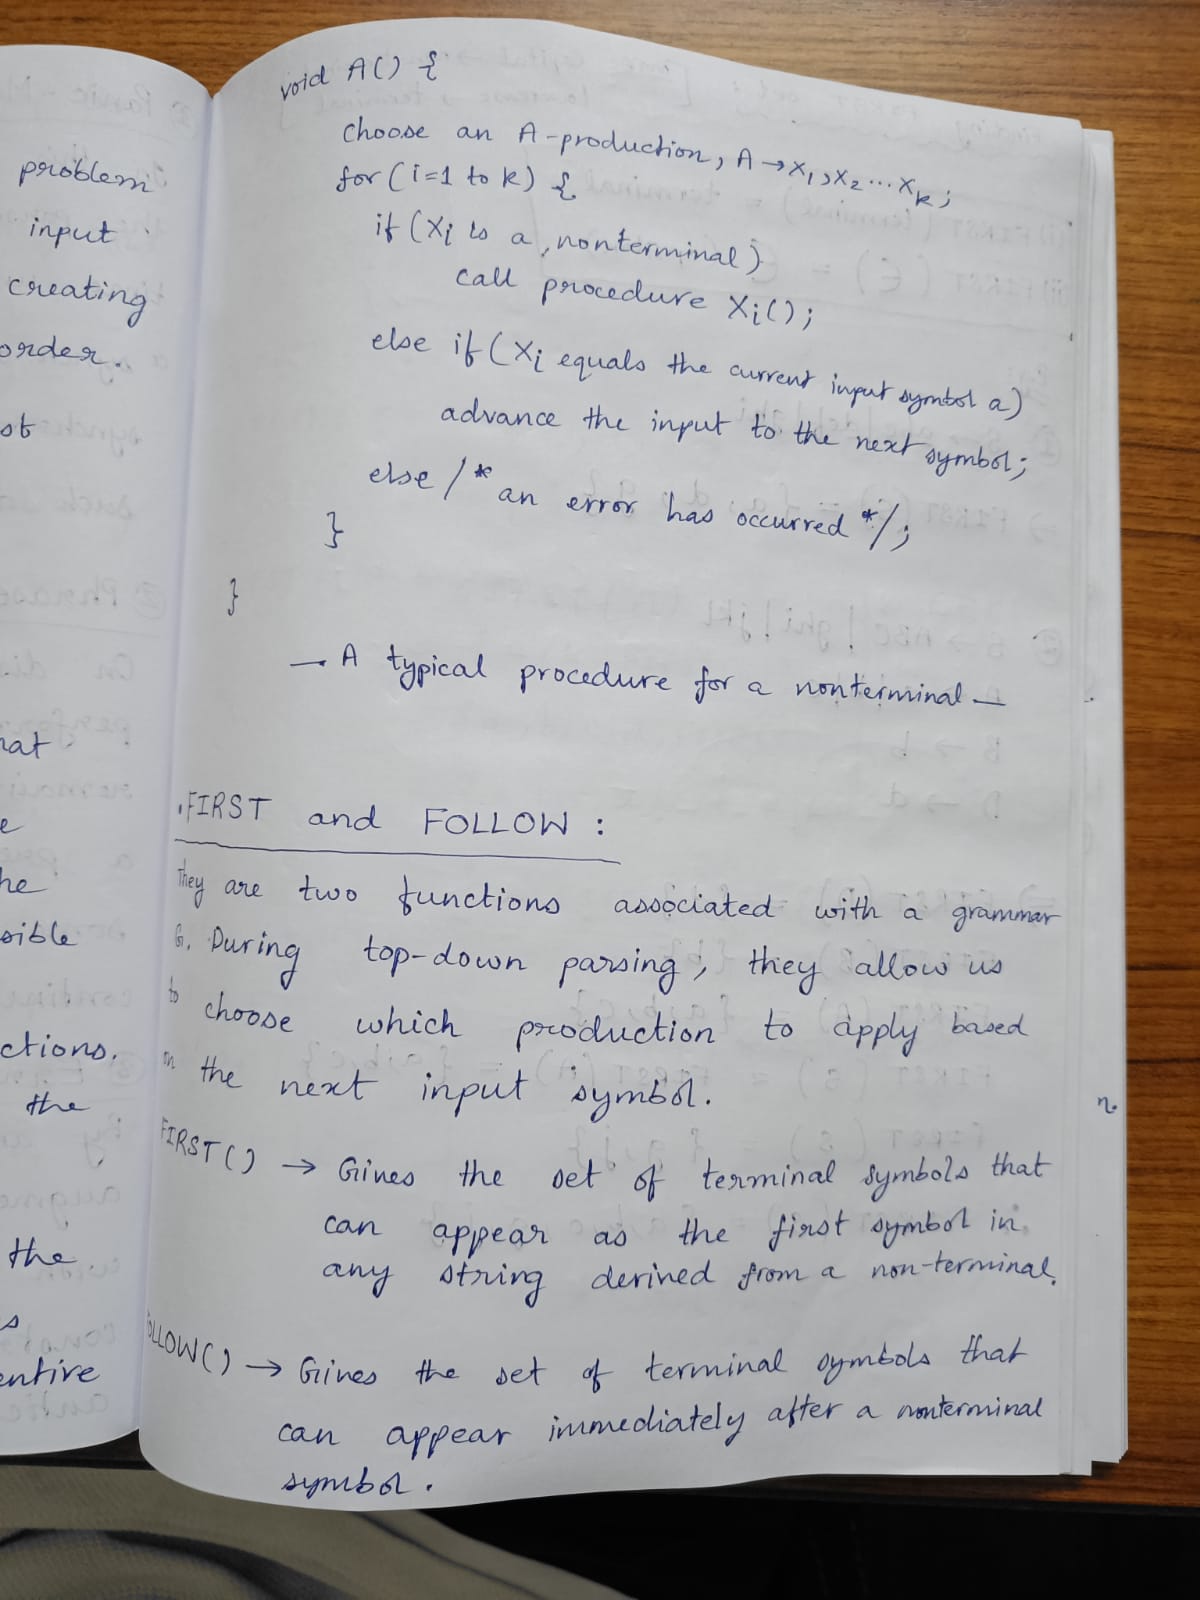 problem
input
creating
order.
st
hat
e
he
sible
ctions.
the
the
s
entire
void A() {
choose an A-production, A → X1, X2 ... Xk;
for (i=1 to k) {
if (Xi is a nonterminal)
call procedure Xi();
else if (Xi equals the current input symbol a)
advance the input to the next symbol;
else /* an error has occurred */;
}
}
— A typical procedure for a nonterminal —
FIRST and FOLLOW :
They are two functions associated with a grammar
G. During top-down parsing, they allow us
to choose which production to apply based
on the next input symbol.
FIRST() → Gives the set of terminal symbols that
can appear as the first symbol in
any string derived from a non-terminal.
FOLLOW() → Gives the set of terminal symbols that
can appear immediately after a nonterminal
symbol.
n.